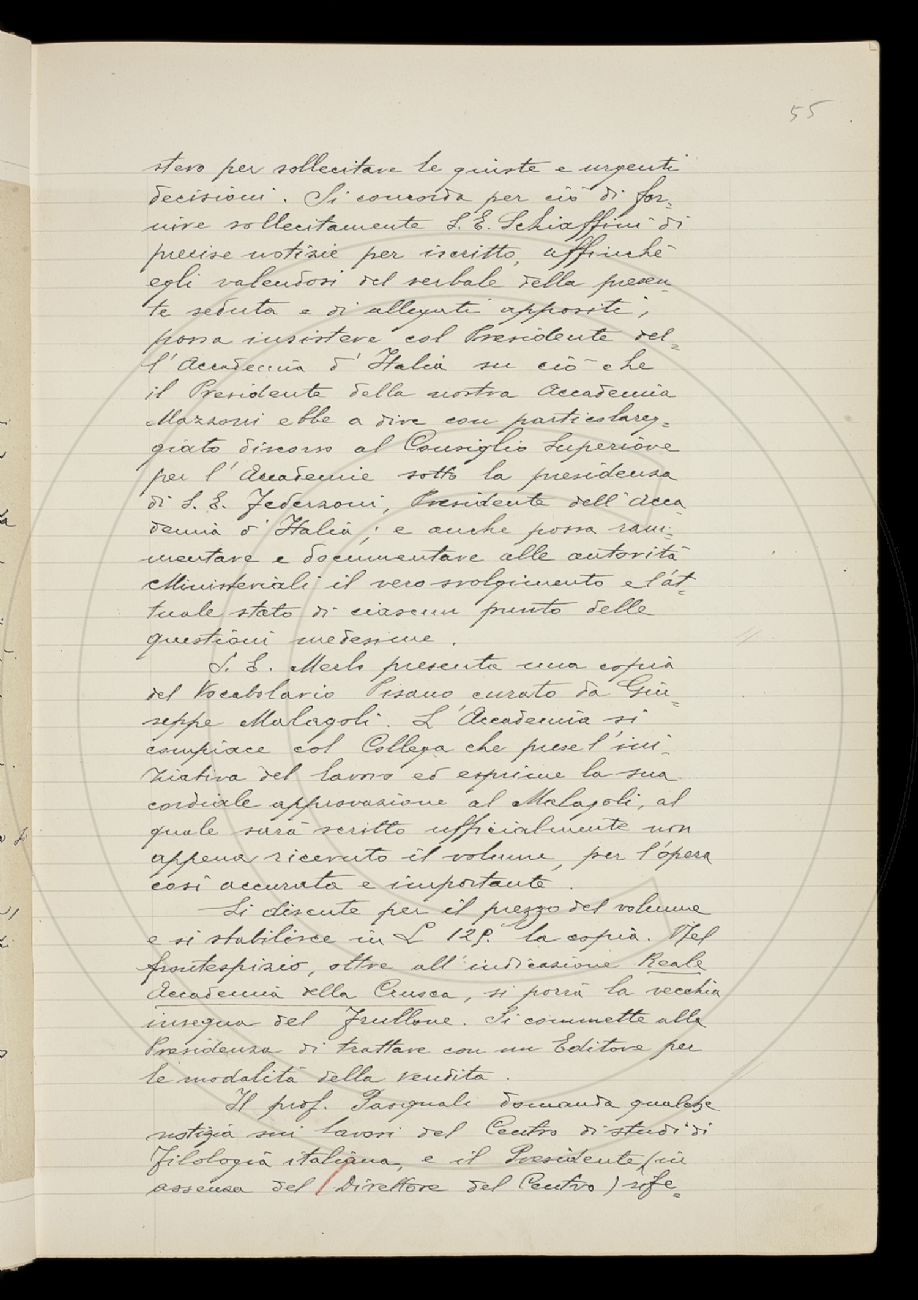 55
stero per sollecitare le giuste e urgenti
decisioni. Si concorda per ciò di for=
nire sollecitamente S. E. Schiaffini di
precise notizie per iscritto, affinché
egli valendosi del verbale della presen=
te seduta e di allegati appositi,
possa insistere col Presidente del=
l'Accademia d'Italia su ciò che
il Presidente della nostra Accademia
Mazzoni ebbe a dire con particolareg=
giato discorso al Consiglio Superiore
per l'Accademie sotto la presidenza
di S. E. Federzoni, Presidente dell'Acca=
demia d'Italia; e anche possa ram=
mentare e documentare alle autorità
Ministeriali il vero svolgimento e l'at=
tuale stato di ciascun punto delle
questioni medesime.
S. E. Merlo presenta una copia
del Vocabolario Pisano curato da Giu=
seppe Malagoli. L'Accademia si
compiace col Collega che prese l'ini=
ziativa del lavoro ed esprime la sua
cordiale approvazione al Malagoli, al
quale sarà scritto ufficialmente non
appena ricevuto il volume, per l'opera
così accurata e importante.
Si discute per il prezzo del volume
e si stabilisce in L la copia. Nel
frontespizio, oltre all'indicazione Reale
Accademia della Crusca, si porrà la vecchia
insegna del Frullone. Si commette alla
Presidenza di trattare con un Editore per
le modalità della vendita.
Il prof. Pasquali domanda qualche
notizia sui lavori del Centro di studi di
Filologia italiana, e il Presidente (in
assenza del Direttore del Centro) rife=